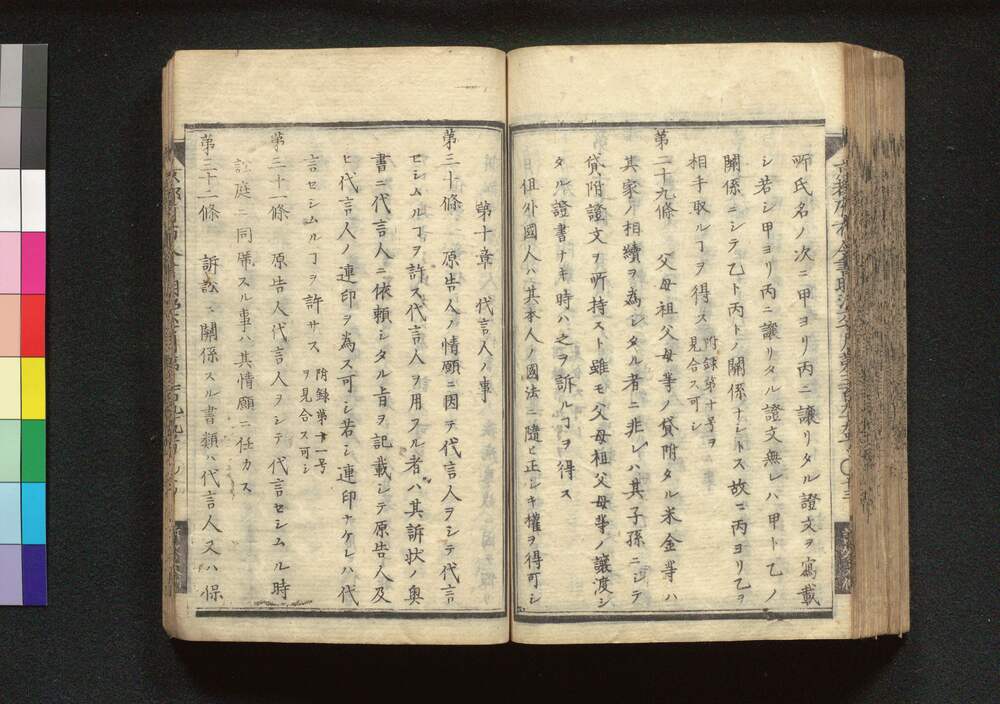 所氏名ノ次ニ甲ヨリ丙ニ讓リタル證文ヲ寫載
シ若シ甲ヨリ丙ニ讓リタル證文無レハ甲ト乙ノ
關係ニシテ乙ト丙トノ關係ナシトス故ニ丙ヨリ乙ヲ
相手取ルヿヲ得ス
附録第十号ヲ
見合ス可シ
第二十九條 父母祖父母等ノ貸附タル米金等ハ
其家ノ相續ヲ為シタル者ニ非レハ其子孫ニシテ
貸附證文ヲ所持スト雖モ父母祖父母等ノ讓渡シ
タル證書ナキ時ハ之ヲ訴ルヿヲ得ス
但外國人ハ其本人ノ國法ニ隨ヒ正シキ權ヲ得可シ
第十章 代言人ノ事
第三十條 原告人ノ情願ニ因テ代言人ヲシテ代言
セシムルヿヲ許ス代言人ヲ用フル者ハ其訴状ノ奥
書ニ代言人ニ依頼シタル旨ヲ記載シテ原告人及
ヒ代言人ノ連印ヲ為ス可シ若シ連印ナケレハ代
言セシムルヿヲ許サス
附録第十一号
ヲ見合ス可シ
第三十一條 原告人代言人ヲシテ代言セシムル時
訟庭ニ同席スル事ハ其情願ニ任カス
第三十二條 訴訟ニ關係スル書類ハ代言人又ハ保